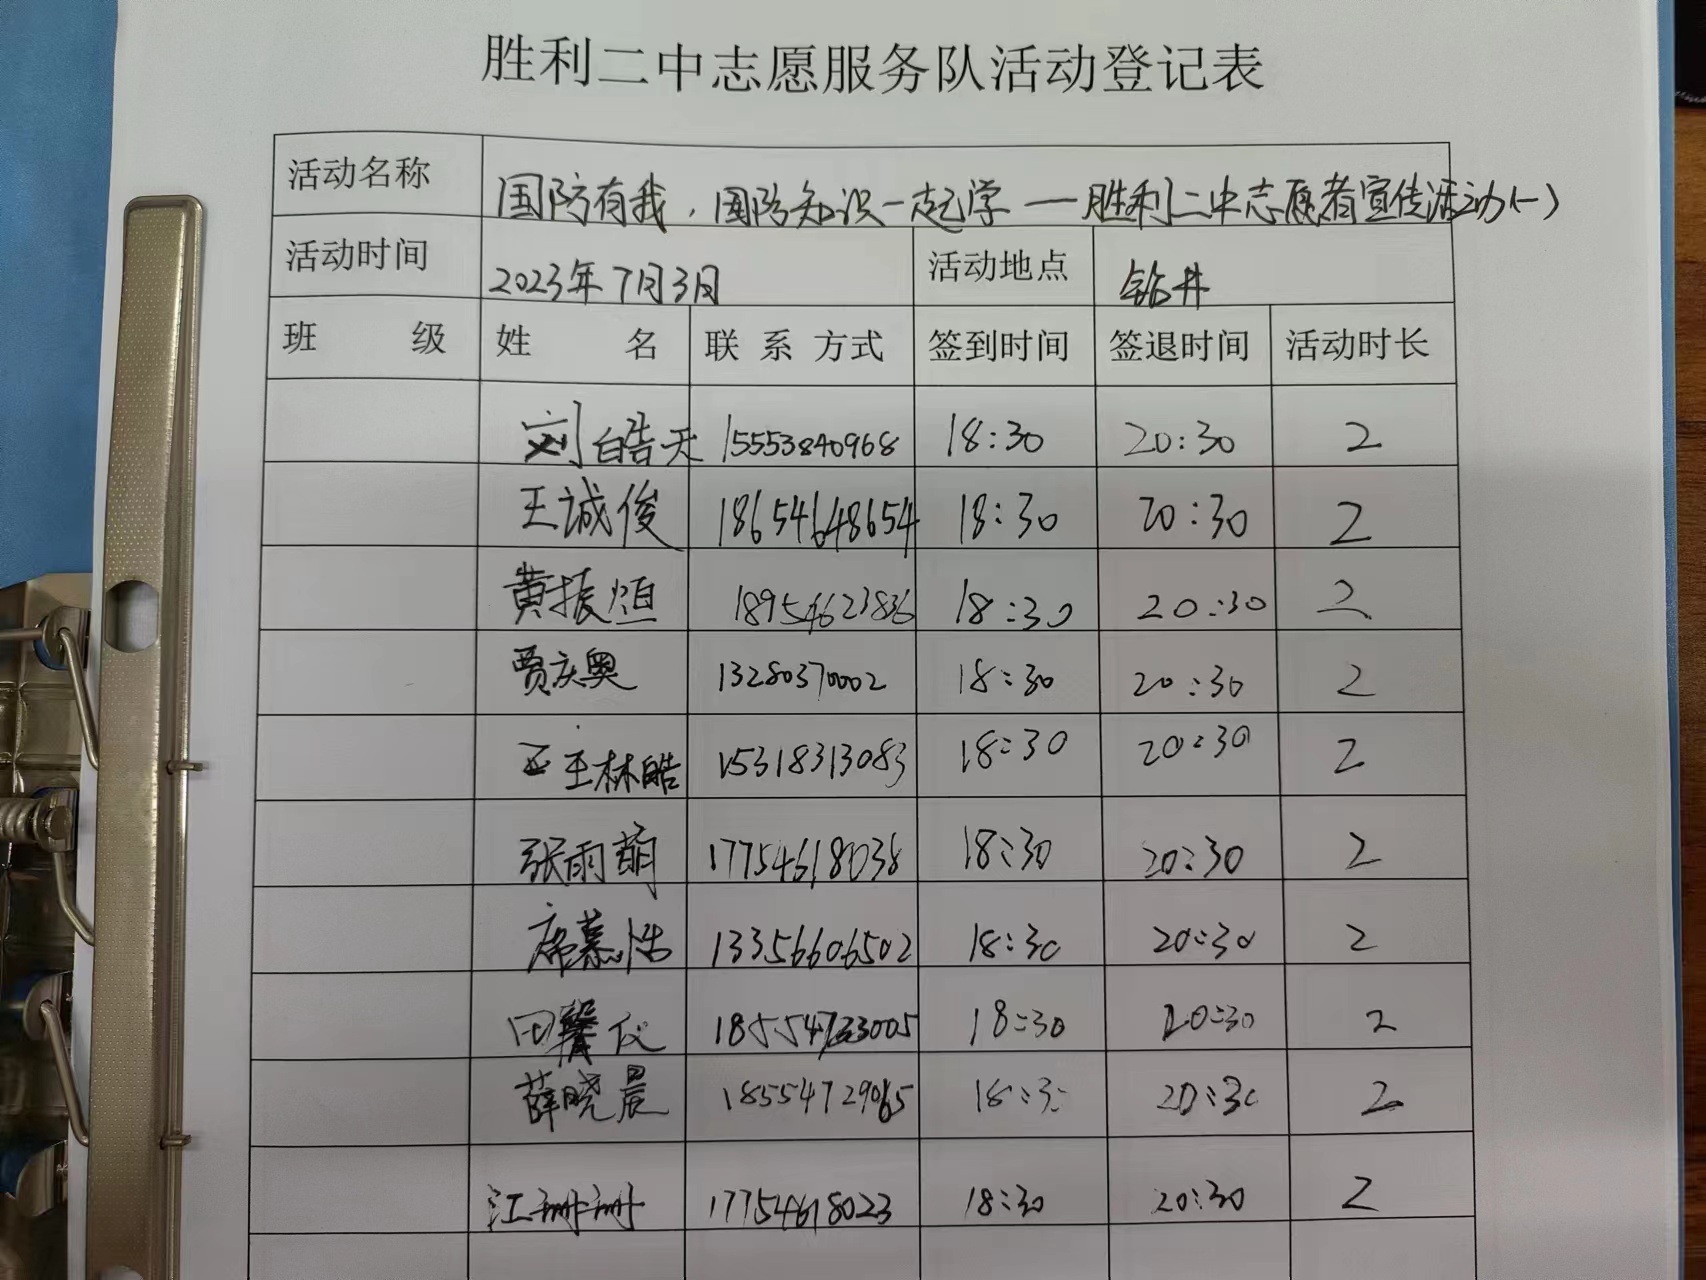 胜利二中志愿服务队活动登记表
活动名称 国防有我，国防知识一起学——胜利二中志愿者宣传活动(一)
活动时间 2023年7月3日 活动地点 钻井
班 级 姓 名 联 系 方式 签到时间 签退时间 活动时长
刘皓天 15553840968 18:30 20:30 2
王诚俊 18654648654 18:30 20:30 2
黄振烜 18954623836 18:30 20:30 2
贾庆奥 13280370002 18:30 20:30 2
王林皓 15318313083 18:30 20:30 2
张雨萌 17754618038 18:30 20:30 2
席慕浩 13356606502 18:30 20:30 2
田馨仪 18:30 20:30 2
薛晓晨 18554729065 18:30 20:30 2
江珊珊 17754618023 18:30 20:30 2